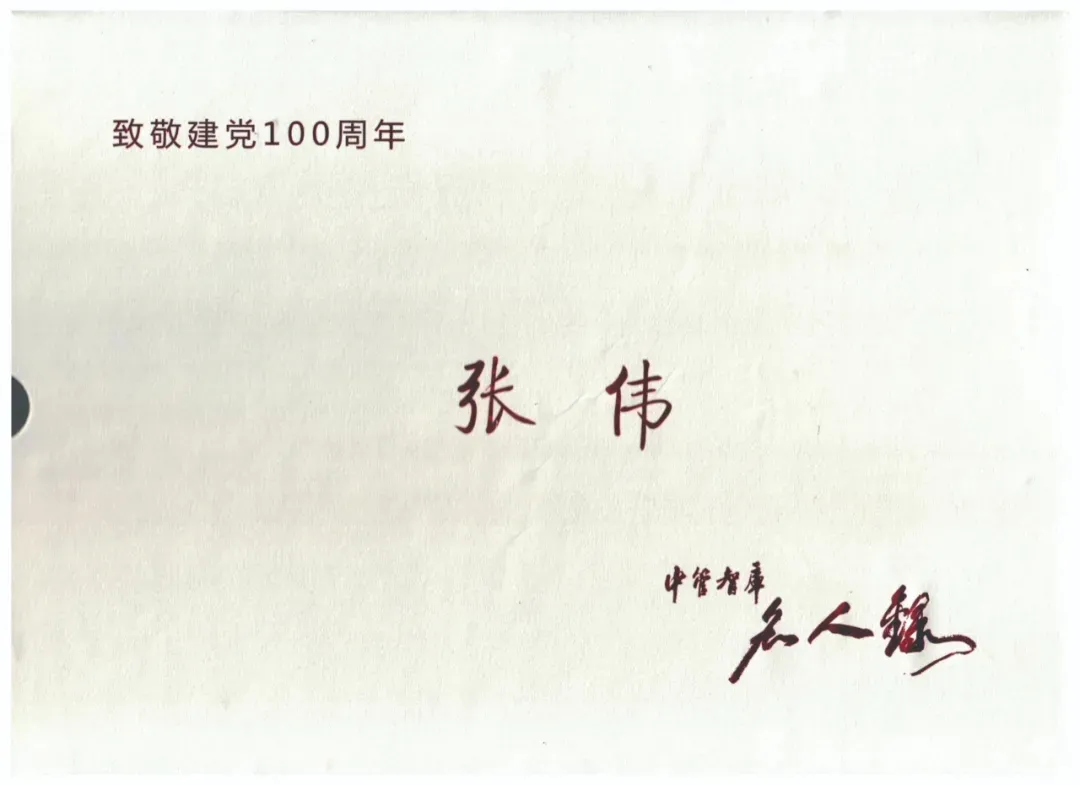 致敬建党100周年
张 伟
中管智庫
名人錄